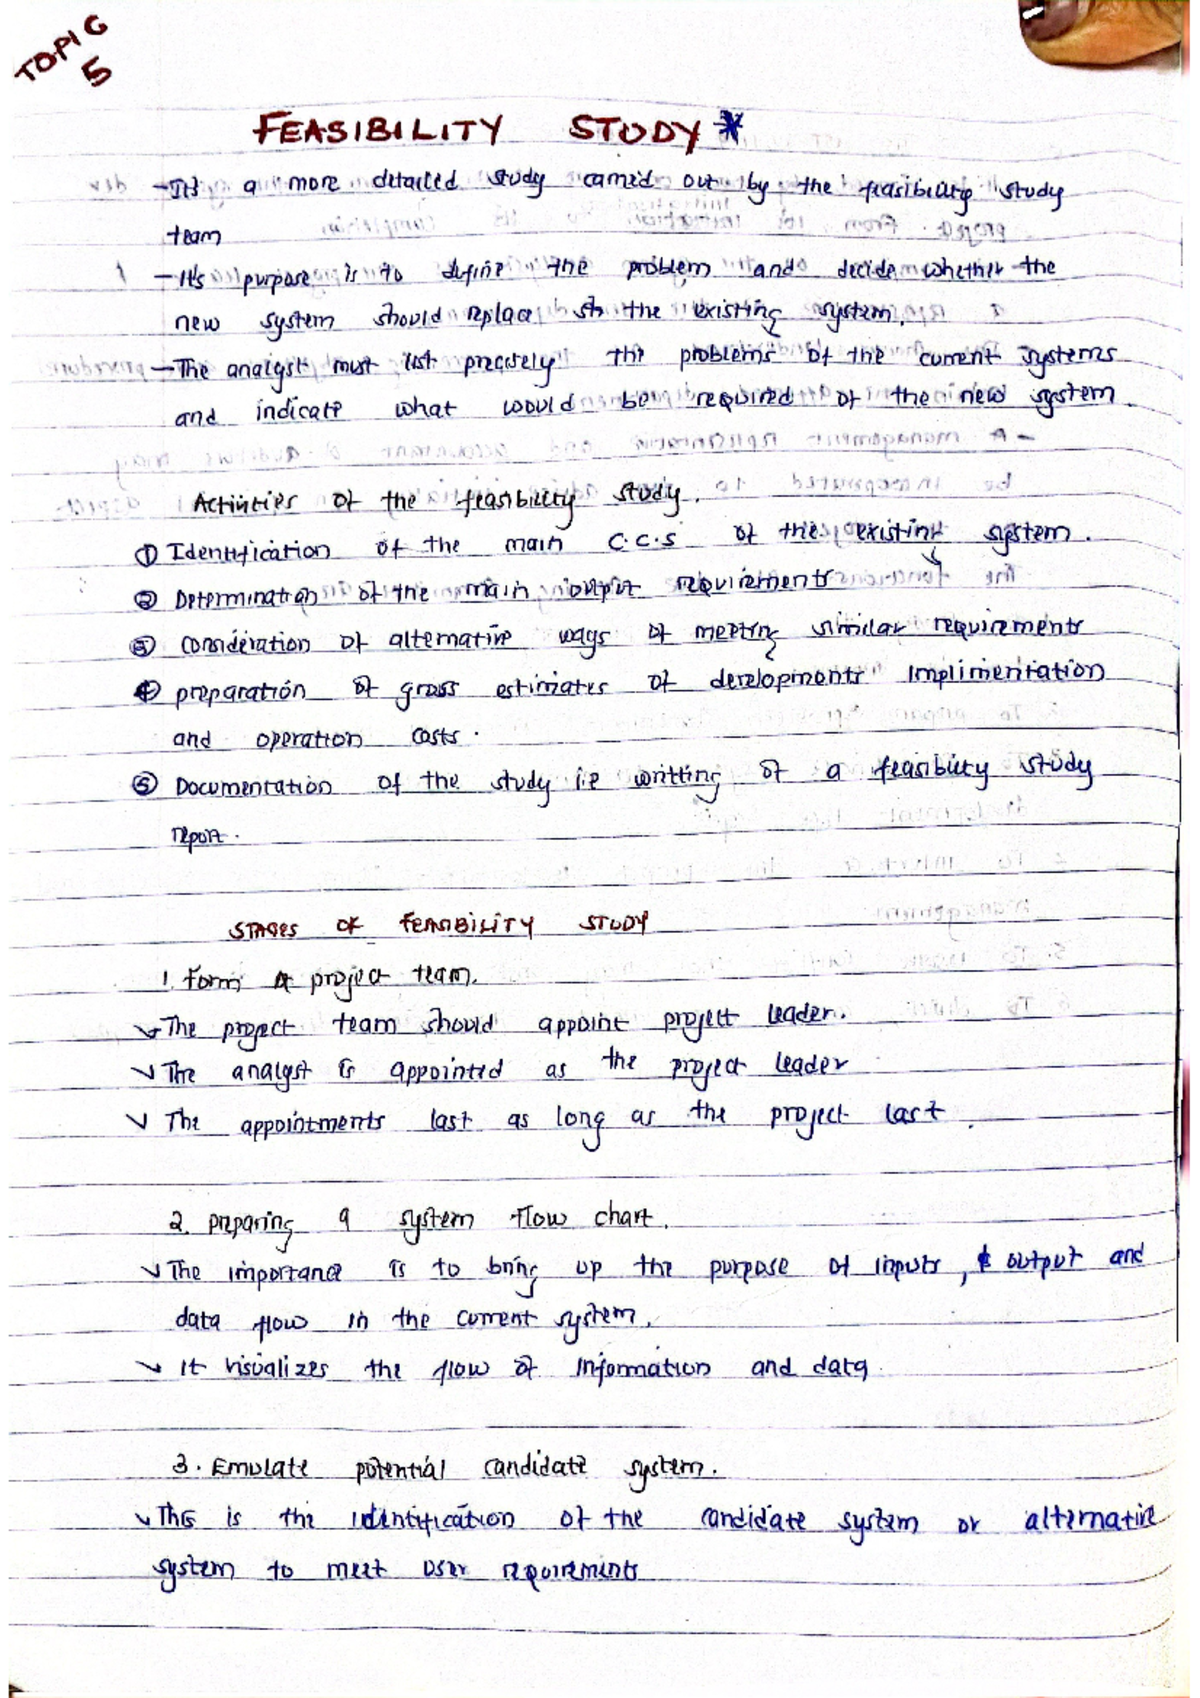 TOPIC
5
FEASIBILITY STUDY *
- It's a more detailed study carried out by the feasibility study
team
- It's purpose is to define the problem and decide whether the
new system should replace the existing system.
- The analyst must list precisely the problems of the current systems
and indicate what would be required of the new system.
Activities of the feasibility study.
① Identification of the main C.C.S of the existing system.
② Determination of the main output requirements
③ consideration of alternative ways of meeting similar requirements
④ preparation of gross estimates of developments implimentation
and operation costs.
⑤ Documentation of the study i.e writting of a feasibility study
report.
STAGES OF FEASIBILITY STUDY
1. Form a project team.
✓ The project team should appoint project leader.
✓ The analyst is appointed as the project leader
✓ The appointments last as long as the project last.
2. preparing a system flow chart.
✓ The importance is to bring up the purpose of inputs, output and
data flow in the current system.
✓ It visualizes the flow of information and data.
3. Emulate potential candidate system.
✓ This is the identification of the candidate system or alternative
system to meet user requirements